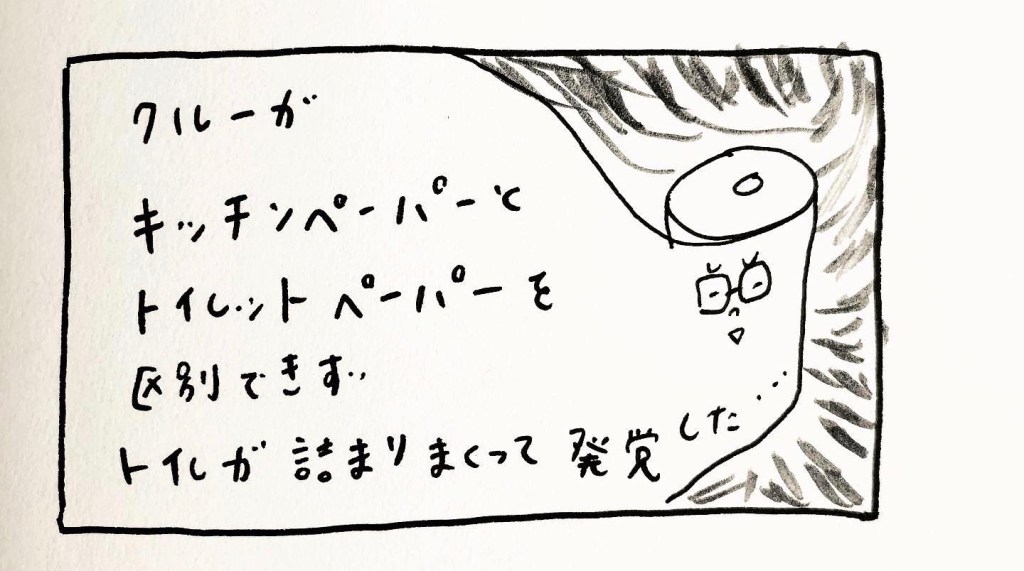 クルーが
キッチンペーパーと
トイレットペーパーを
区別できず、
トイレが詰まりまくって発覚した…